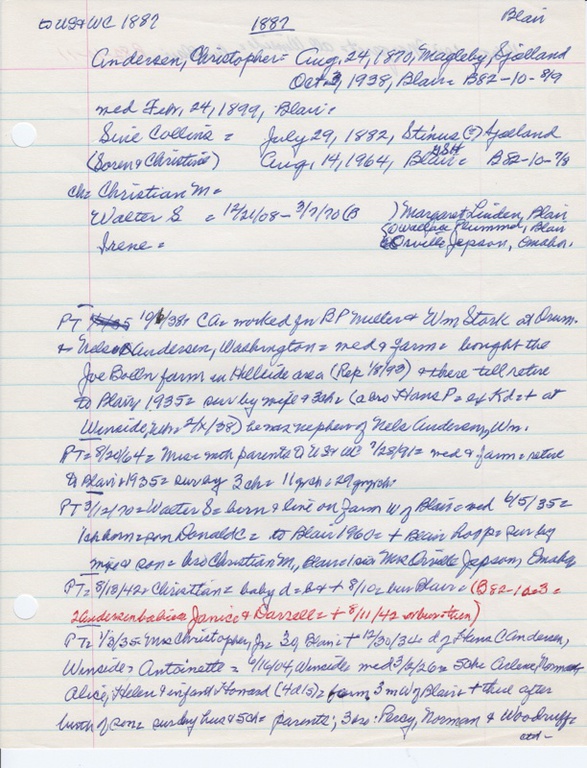 to US & WC 1887 1887 Blair
Andersen, Christopher = Aug. 24, 1870, Magleby, Sjolland
Oct. 3, 1938, Blair = B82-10-8/9
med Febr. 24, 1899, Blair =
Sine Collins = July 29, 1882, Stinus (?) Sjolland
(Soren & Christine) Aug. 14, 1964, Blair = B82-10-7/8
ch = Christian M =
Walter S = 12/21/08 - 3/7/70 (B ) Margaret Linden, Blair
Wallace Plummer, Blair
Irene = Orville Jepson, Omaha.
PT 10/6/38 = CA = worked for BP Miller & Wm Stork at Orum
& Nels Andersen, Washington = med & farm = bought the
Joe Bolln farm in Hillside area (Rep 1/8/93) & there tell retire
to Blair 1935 = sur by wife & 3ch = (a bro Hans P = ex Kd = + at
Winside, 2/X/38) he was nephew of Nels Andersen, Wm.
PT = 8/20/64 = Mrs = with parents D US & WC 7/28/91 = med & farm = retire
to Blair 1935 = survby 3 ch = 11 gch = 29 ggch
PT 3/12/70 = Walter S = born & live on farm W of Blair = med 6/5/35 =
1 ch born = son Donald C = to Blair 1960 = + Blair hosp = sur by
wife & son = bro Christian M, Blair = 1 sis Mrs Orville Jepson, Omaha
PT = 8/13/42 = Christian = baby d = b & + 8/10 = bur Blair = (B 82-10-3 =
2 Andersen babies Janice & Darrell = + 8/11/42 or bur then)
PT = 1/3/35 = Mrs Christopher, Jr = 30 Blair + 12/30/34 d of Hans C Andersen,
Winside & Antoinette = 6/16/04, Winside med 3/2/26 = 5ch Arlene, Norman
Alice, Helen & infant Howard (4 d 15) = farm 3 m W of Blair & + there after
birth of son = surby hus & 5ch = parents; 3 bro: Percy, Norman & Woodruff =
ctd -